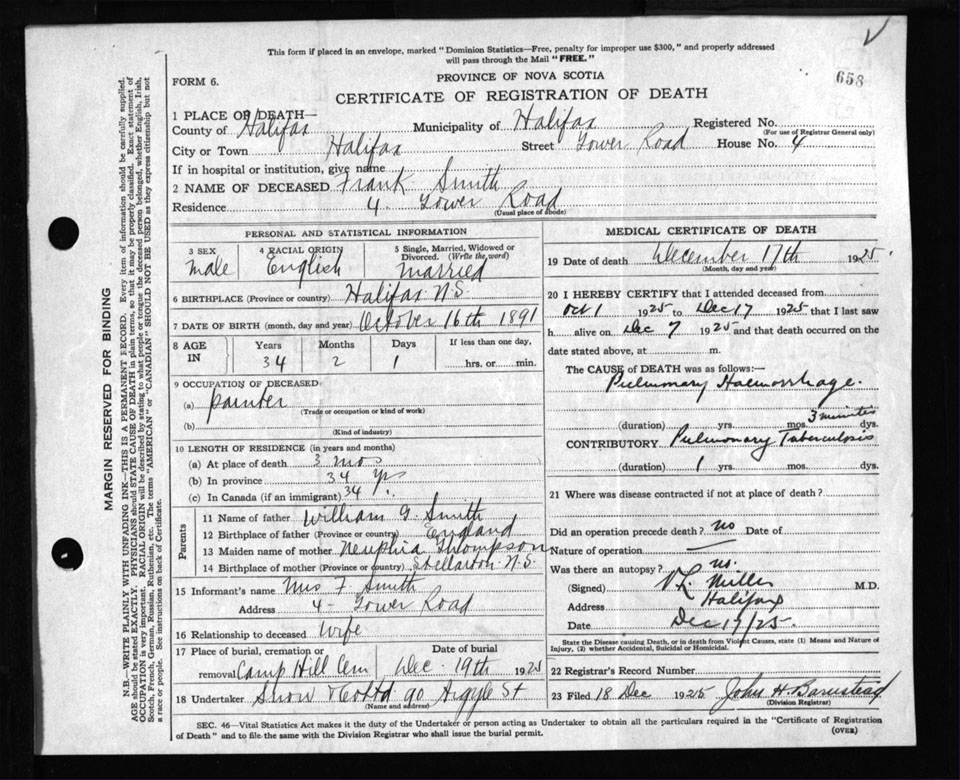 This form if placed in an envelope, marked "Dominion Statistics—Free, penalty for improper use $300," and properly addressed
will pass through the Mail "FREE."
658
FORM 6.
PROVINCE OF NOVA SCOTIA
CERTIFICATE OF REGISTRATION OF DEATH
1 PLACE OF DEATH—
County of Halifax Municipality of Halifax Registered No.
(For use of Registrar General only)
City or Town Halifax Street Tower Road House No. 4
If in hospital or institution, give name
2 NAME OF DECEASED Frank Smith
Residence 4 Tower Road
(Usual place of abode)
PERSONAL AND STATISTICAL INFORMATION
3 SEX 4 RACIAL ORIGIN 5 Single, Married, Widowed or Divorced. (Write the word)
male English married
6 BIRTHPLACE (Province or country) Halifax N.S.
7 DATE OF BIRTH (month, day and year) October 16th 1891
8 AGE IN Years Months Days If less than one day,
34 2 1 hrs. or min.
9 OCCUPATION OF DECEASED
(a) painter
(Trade or occupation or kind of work)
(b)
(Kind of industry)
10 LENGTH OF RESIDENCE (in years and months)
(a) At place of death 3 mos
(b) In province 34 yrs
(c) In Canada (if an immigrant) 34
Parents
11 Name of father William G. Smith
12 Birthplace of father (Province or country) England
13 Maiden name of mother Thompson
14 Birthplace of mother (Province or country) Stellarton N.S.
15 Informant's name Mrs F. Smith
Address 4 - Tower Road
16 Relationship to deceased Wife
17 Place of burial, cremation or removal Date of burial
Camp Hill Cem Dec. 19th 1925
18 Undertaker Snow & Co Ltd 90 Argyle St
(Name and address)
MEDICAL CERTIFICATE OF DEATH
19 Date of death December 17th 1925
(Month, day and year)
20 I HEREBY CERTIFY that I attended deceased from
Oct 1 1925 to Dec 17 1925 that I last saw
h alive on Dec 7 1925 and that death occurred on the
date stated above, at m.
The CAUSE of DEATH was as follows:—
Pulmonary Haemorrhage.
3 minutes
(duration) yrs. mos. dys.
CONTRIBUTORY Pulmonary Tuberculosis
(duration) 1 yrs. mos. dys.
21 Where was disease contracted if not at place of death?
Did an operation precede death? no Date of
Nature of operation —
Was there an autopsy? no.
(Signed) V L Miller M.D.
Address Halifax
Date Dec 17/25.
State the Disease causing Death, or in death from Violent Causes, state (1) Means and Nature of
Injury, (2) whether Accidental, Suicidal or Homicidal.
22 Registrar's Record Number
23 Filed 18 Dec 1925 John H. Barnstead
(Division Registrar)
SEC. 46—Vital Statistics Act makes it the duty of the Undertaker or person acting as Undertaker to obtain all the particulars required in the "Certificate of Registration
of Death" and to file the same with the Division Registrar who shall issue the burial permit.
(OVER)
MARGIN RESERVED FOR BINDING
N.B.—WRITE PLAINLY WITH UNFADING INK—THIS IS A PERMANENT RECORD. Every item of information should be carefully supplied.
AGE should be stated EXACTLY. PHYSICIANS should STATE CAUSE OF DEATH in plain terms, so that it may be properly classified. Exact statement of
OCCUPATION is very important. RACIAL ORIGIN will be described by stating to what people or tongue the deceased person belonged, whether English, Irish,
Scotch, French, German, Russian, Ruthenian, etc. The terms "AMERICAN" or "CANADIAN" SHOULD NOT BE USED as they express citizenship but not
a race or people. See instructions on back of Certificate.